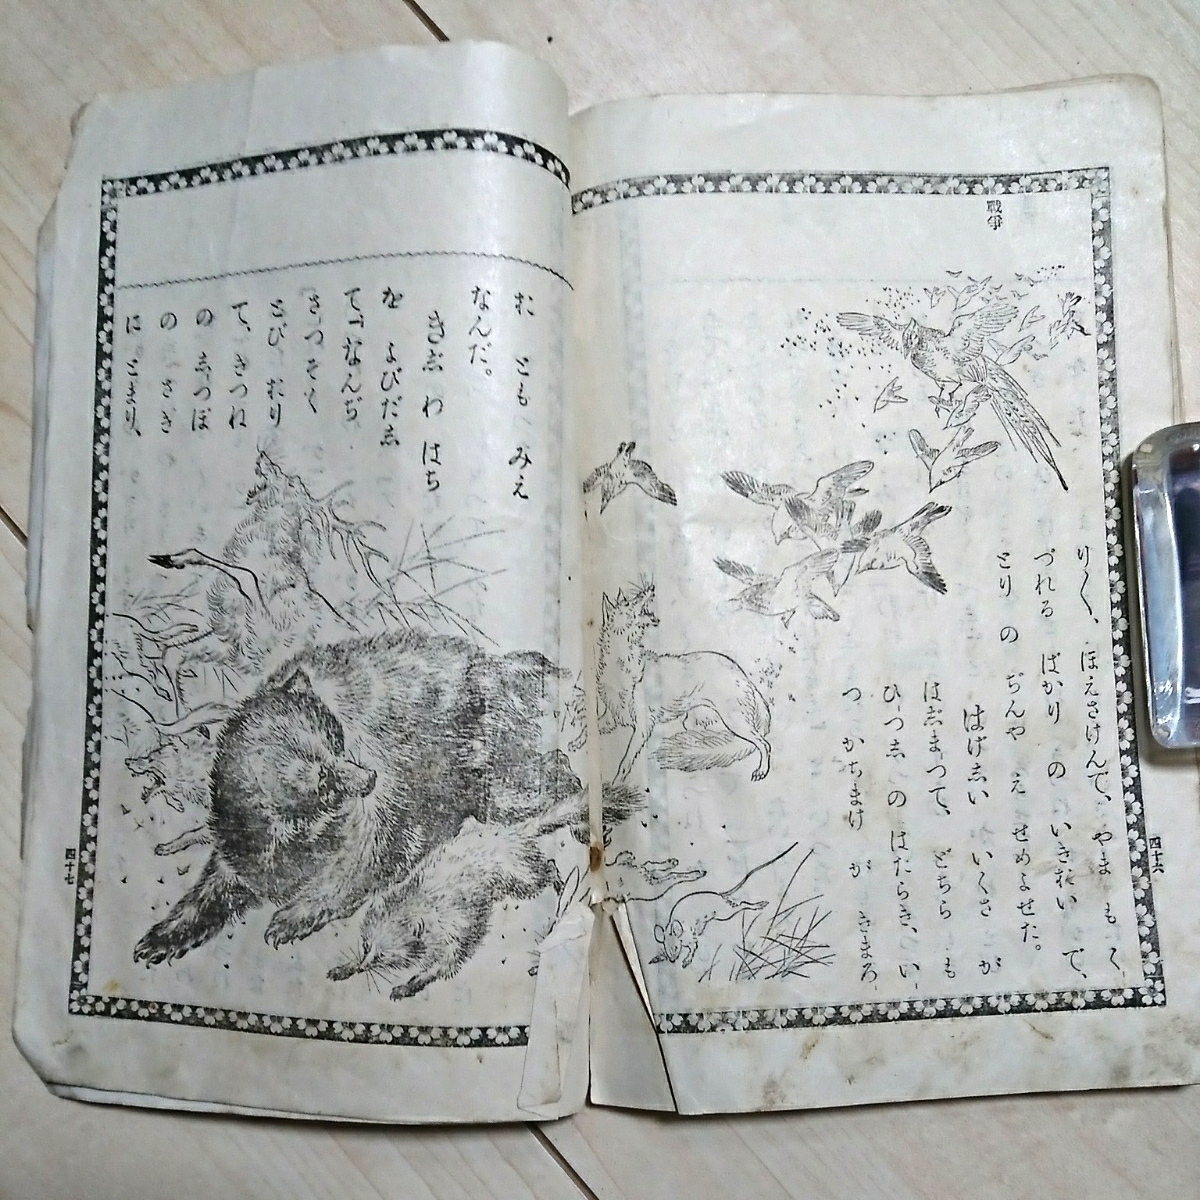 戰爭
りく、ほえさけんで、やま も く
づれる ばかり の いきおい で、
とり の ぢんや え せめよせた。
はげしい いくさ が
はじまつて、どちら も
ひつし の はたらき、い
つ かちまけ が きまろ
四十六
お とも みえ
なんだ。
きじ わ はち
を よびだし
て「なんぢ
さつそく
とび おり
て、きつね
の しつぽ
の さき
に とまり、
四十七